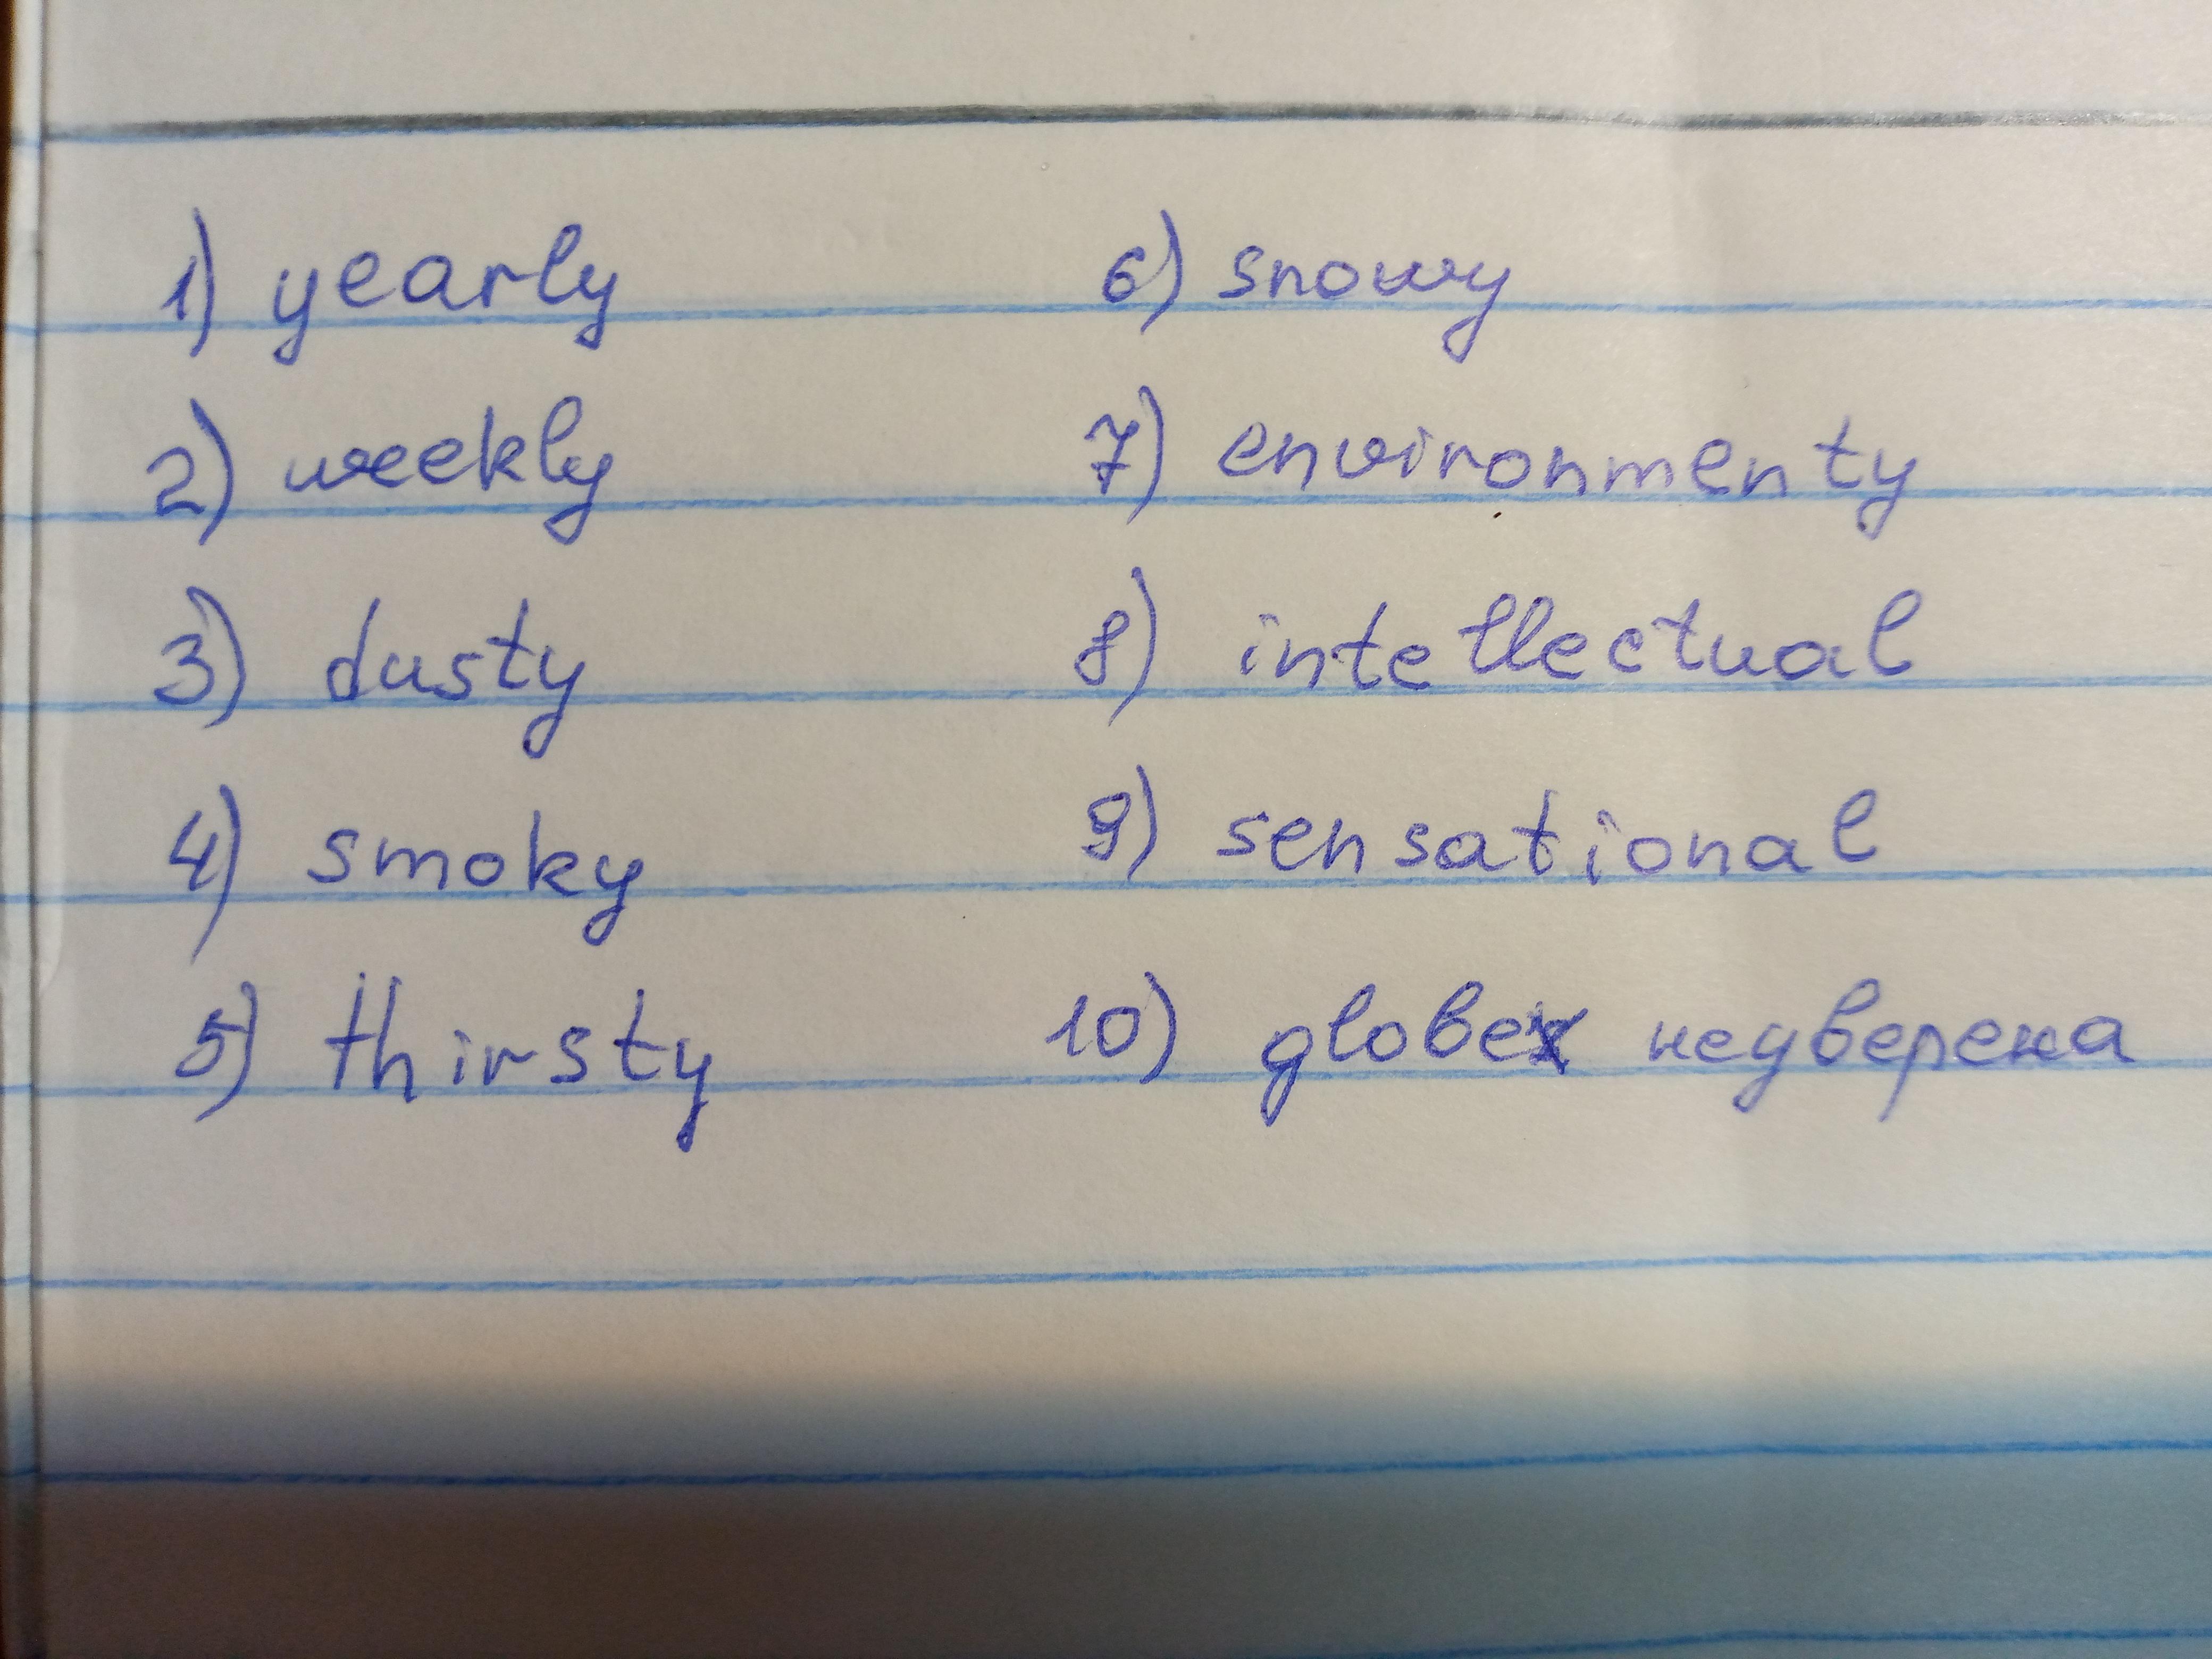 1) yearly
2) weekly
3) dusty
4) smoky
5) thirsty
6) snowy
7) environmenty
8) intellectual
9) sensational
10) globe неуверена